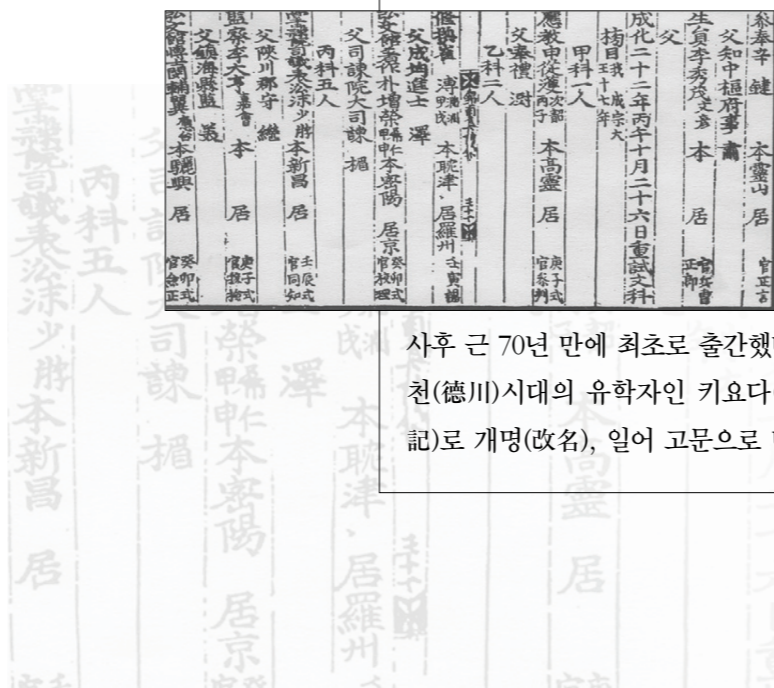 參奉辛 本靈山 居 官正言
父知中樞府事 肅
生員李秀茂 本 居 官兵曹正郎
父
成化二十二年丙午十月二十六日重試文科
榜目 我 成宗大王十七年
甲科一人
應敎申從濩次韶丙子 本高靈 居 庚子式 官參判
父奉禮 澍
乙科二人
修撰崔 溥淵淵甲戌 本耽津、居羅州 壬寅謁
父成均進士 澤
朴增榮希仁甲申 本密陽 居京 癸卯式 官校理
父司諫院大司諫 楣
丙科五人
表沿沫少游 本新昌 居 壬辰式 官同知
父陜川郡守 繼
監察李大亨嘉會 本 居 庚子式
父鎭海縣監 義
弘文館博士 本驪興 居 癸卯式 官僉正
사후 근 70년 만에 최초로 출간했
천(德川)시대의 유학자인 키요다
記)로 개명(改名), 일어 고문으로